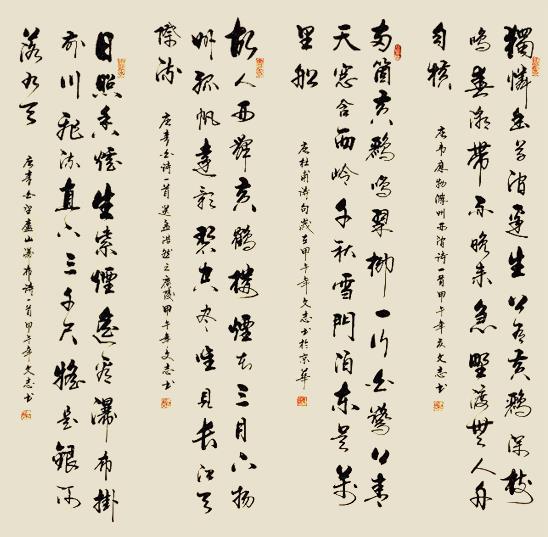 獨憐幽草涧邊生上有黄鹂深树
鳴春潮帶雨晚来急野渡無人舟
自横
唐韦應物滁州西涧诗一首甲午年夏文志书
两箇黄鹂鳴翠柳一行白鷺上青
天窓含西岭千秋雪門泊东吴萬
里船
唐杜甫诗句歲在甲午年文志书於京華
故人西辞黄鶴樓煙花三月下扬
州孤帆遠影碧空尽唯見長江天
際流
唐李白诗一首送孟浩然之廣陵甲午年文志书
日照香炉生紫煙遥看瀑布掛
前川飛流直下三千尺疑是銀河
落九天
唐李白望廬山瀑布诗一首甲午年文志书